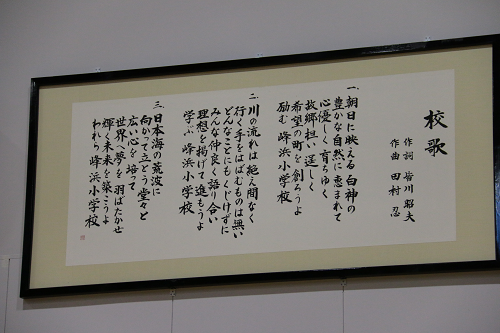 校歌
作詞 皆川昭夫
作曲 田村 忍
一、朝日に映える白神の
豊かな自然に恵まれて
心優しく育ちゆく
故郷担い逞しく
希望の町を創ろうよ
励む峰浜小学校
二、川の流れは絶え間なく
行く手をはばむものは無い
どんなことにもくじけずに
みんな仲良く語り合い
理想を掲げて進もうよ
学ぶ峰浜小学校
三、日本海の荒波に
向かって立とう堂々と
広い心を培って
世界へ夢を羽ばたかせ
輝く未来を築こうよ
われら峰浜小学校